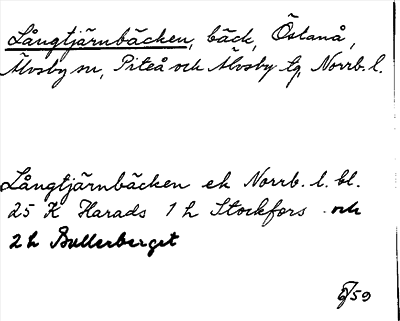 Långtjärnbäcken, bäck, Östanå,
Älvsby sn, Piteå och Älvsby tg, Norrb. l.
Långtjärnbäcken ek Norrb. l. bl.
25 K Harads 1 h Stockfors och
2 h Bullerberget
6/59